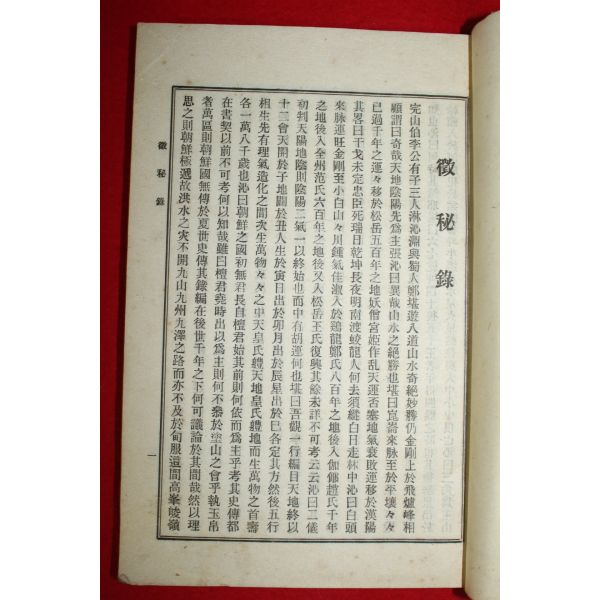 徵秘錄
完山伯李公有子三人淋沁淵與蜀人鄭堪遊八道山水奇絶妙勝仍金剛上於飛爐峰相
顧謂曰奇哉天地陰陽先爲主張沁曰異哉山水之絶勝也堪曰崑崙來脉至於平壤々々
已過千年之運々移於松岳五百年之地妖僧宮姬作乱天運否塞地氣衰敗運移於漢陽
其畧曰干戈未定忠臣死瑞日乾坤長夜明南渡蛟龍人何去須縱白日走林中沁曰白頭
來脉運旺金剛至小白山々川鍾氣佳淑入於鷄龍鄭氏八百年之地後入伽倻趙氏千年
之地後入全州范氏六百年之地後又入松岳王氏復興其餘未詳不可考云云沁曰二儀
初判天陽地陰則陰陽二氣一以終始也而中有胡運何也堪曰吾觀一行編目天地終以
十三會天開於子地闢於丑人生於寅日出於卯月出於辰星出於巳各定其方然後五行
相生先有理氣造化之間次生萬物々々之中天皇氏軆天地皇氏軆地而生萬物之首壽
各一萬八千歲也沁曰朝鮮之國初無君長自檀君始其前則何依而爲主乎考其史傳都
在書契以前不可考何以知哉雖曰檀君堯時出以爲主則何不叅於塗山之會乎執玉帛
者萬區則朝鮮國無傳於夏世史傳其錄編在後世千年之下何可議論於其間哉然以理
思之則朝鮮極遞故洪水之灾不開九山九州九澤之路而亦不及於甸服這間高峯峻嶺
徵秘錄
一